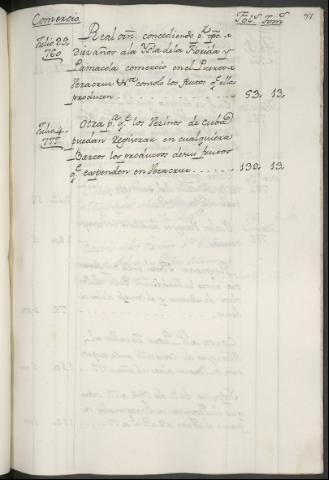 Comercio Fol.s Tom.s 71
Julio 23, Real orn. concediendo pr. tpo. de
760 diez años a la Ysla de la Florida y
Panzacola comercio en el Puerto de
Veracruz con solo los frutos qe. ellos
producen . . . . . . . . 53. 13.
Julio 4. Otra pa. qe. los Vecinos de Cuba
777 puedan Registrar en cualquiera
Barcos los productos de sus frutos
qe. espenden en Veracruz . . . . . . . 132. 13.